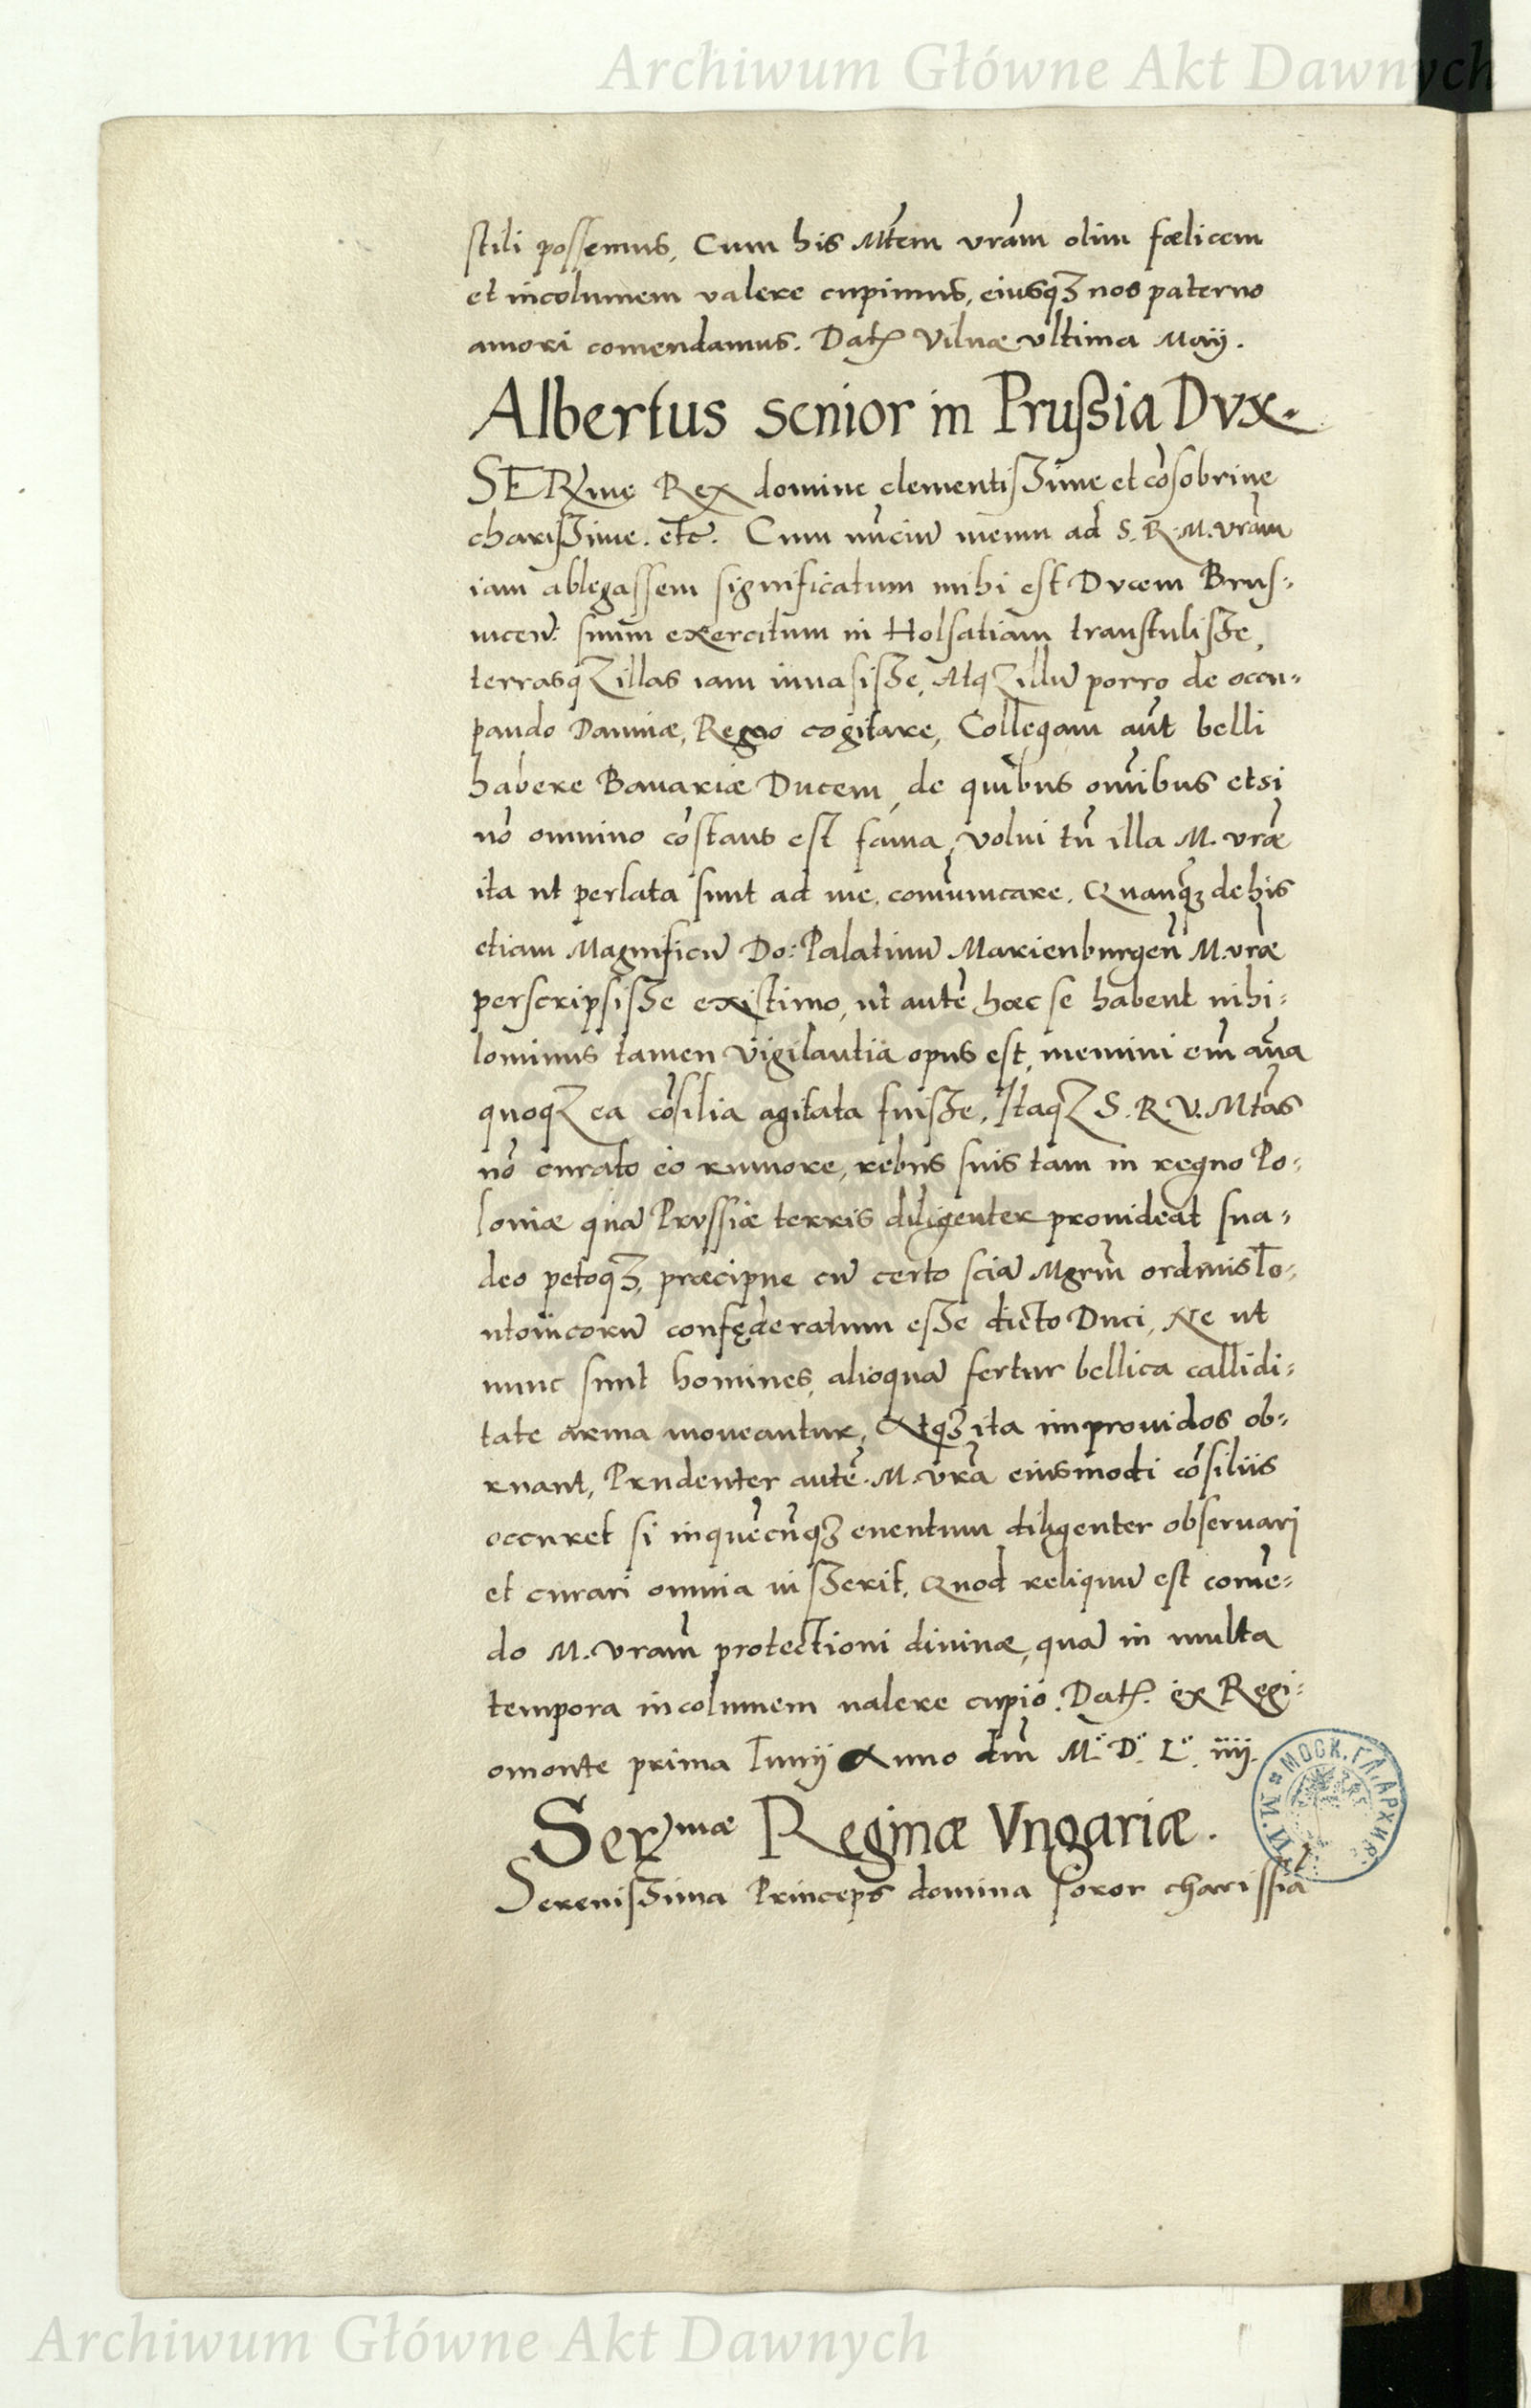 Archiwum Główne Akt Dawnych
stili possemus, Cum his Mtem vram olim fœlicem
et incolumem valere cupimus, eiusqȝ nos paterno
amori comendamus. Dat Vilnæ ultima Maij.
Albertus senior in Prussia Dvx.
SERme Rex domine clementissime et cōsobrine
charissime. etc. Cum nūciū meum ad S. R. M. vram
iam ablegassem significatum mihi est Dvcem Brus-
vicen: suum exercitum in Holsatiam transtulisse,
terrasqȝ illas iam inuasisse, Atqȝ illū porro de occu-
pando Daniæ, Regno cogitare, Collegam aūt belli
habere Bauariæ Ducem, de quibus omībus etsi
nō omnino cōstans est fama, volui tn̄ illa M. vræ
ita ut perlata sunt ad me, comūnicare. Quanqȝ de his
etiam Magnificū Do: Palatinū Marienburgen̄ M. vræ
perscripsisse existimo, ut autē hæc se habent nihi-
lominus tamen vigilantia opus est, memini em̄
quoqȝ ea cōsilia agitata fuisse, Itaqȝ S. R. V. Mtas
nō curato eo rumore, rebus suis tam in regno Po-
loniæ quā Prvssiæ terris diligenter prouideat sua-
deo petoqȝ, præcipue cū certo sciā Mgrm̄ ordinis Te-
utonicorū confęderatum esse dicto Duci, Ne ut
nunc sunt homines, alioquā fertur bellica callidi-
tate arma moveantur, Atqȝ ita improuidos ob-
ruant, Prudenter autē M. vrā eiusmodi cōsiliis
occuret si inquēcūqȝ euentum diligenter observari
et curari omnia iusserit, Quod reliquū est comē-
do M. vram protectioni divinæ, quā in multa
tempora incolumem valere cupio. Dat. ex Regi-
omonte prima Iunij Anno dm̄ M.° D.° L.° iiij.
Serㄧmæ Reginæ Vngariæ.
Serenissima Princeps domina soror charissīa
МОСК. ГЛ. АРХИВ М. И.
Archiwum Główne Akt Dawnych